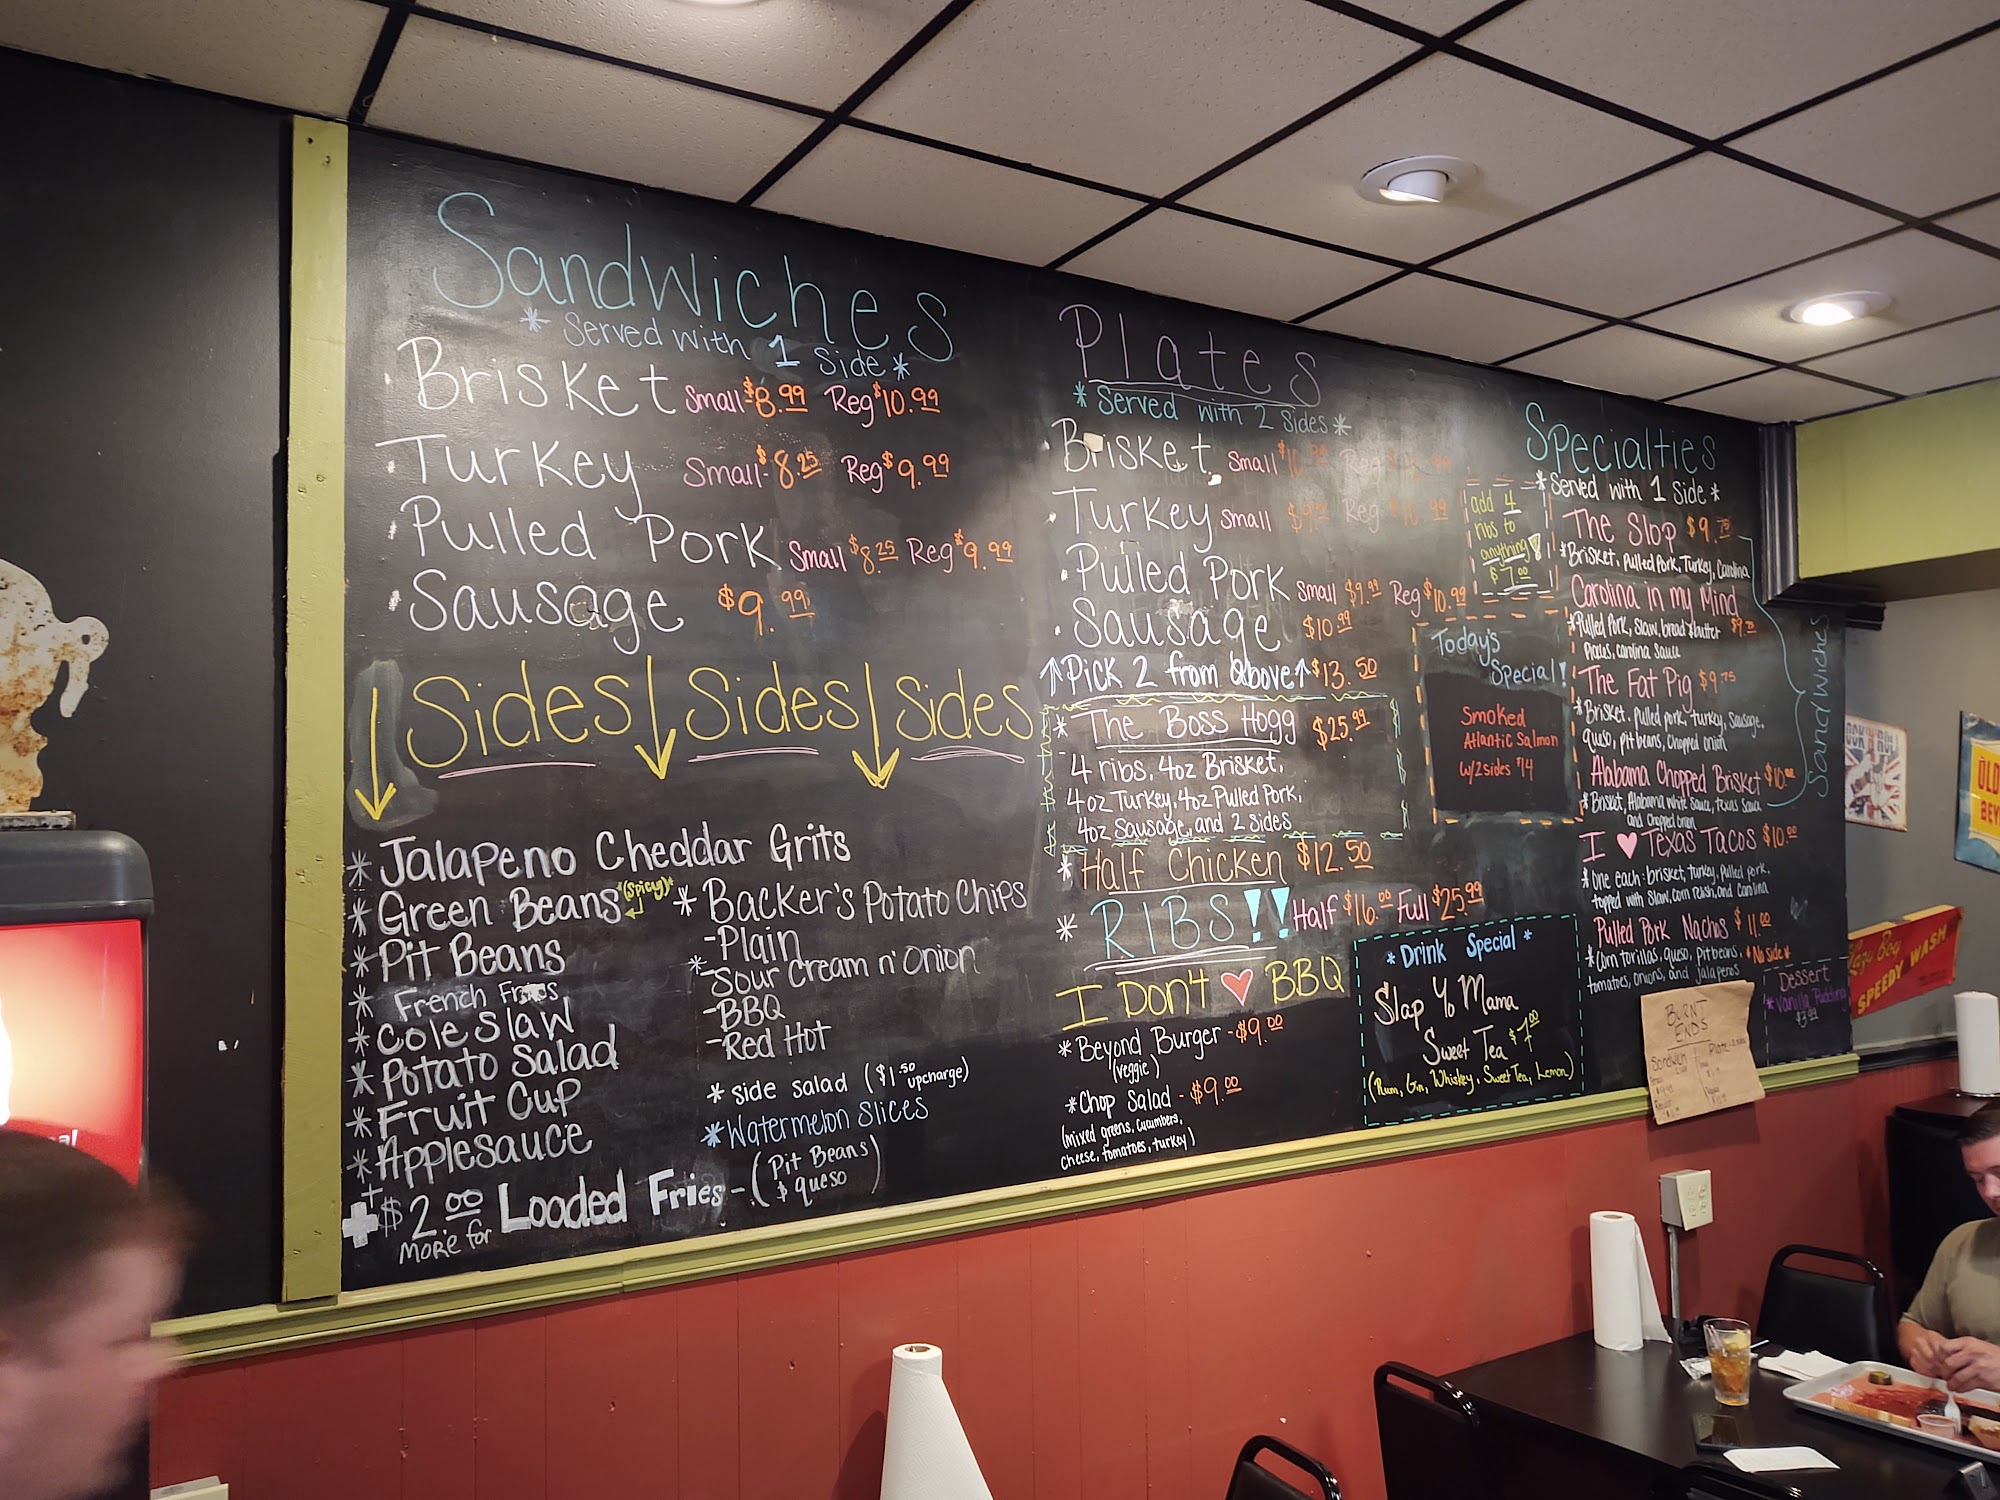 Sandwiches
* Served with 1 Side *
Brisket Small $8.99 Reg $10.99
Turkey Small $8.25 Reg $9.99
Pulled Pork Small $8.25 Reg $9.99
Sausage $9.99
Sides Sides Sides
* Jalapeno Cheddar Grits
* Green Beans (spicy)*
* Pit Beans
* French Fries
* Cole Slaw
* Potato Salad
* Fruit Cup
* Applesauce
* Backer's Potato Chips
- Plain
* - Sour Cream n' Onion
- BBQ
- Red Hot
* side salad ($1.50 upcharge)
* Watermelon Slices
+ $2.00 More for Loaded Fries - (Pit Beans
$ queso)
Plates
* Served with 2 Sides *
Brisket Small Reg
Turkey Small Reg
Pulled Pork Small $9.99 Reg $10.99
Sausage $10.99
↑ Pick 2 from above ↑ $13.50
* The Boss Hogg $25.99
4 ribs, 4oz Brisket,
4oz Turkey, 4oz Pulled Pork,
4oz Sausage, and 2 sides
* Half Chicken $12.50
* RIBS!! Half $16.00 Full $25.99
I Don't ♥ BBQ
* Beyond Burger - $9.00
(veggie)
* Chop Salad - $9.00
(mixed greens, cucumbers,
cheese, tomatoes, turkey)
add 4
ribs to
anything!
$7.00
Today's
Special!
Smoked
Atlantic Salmon
w/2 sides $14
* Drink Special *
Slap Yo Mama
Sweet Tea $7.00
(Rum, Gin, Whiskey, Sweet Tea, Lemon)
Specialties
* Served with 1 Side *
The Slop $9.75
* Brisket, Pulled Pork, Turkey, Carolina
Carolina in my Mind
* Pulled Pork, Slaw, bread & butter $9.75
Pickles, Carolina Sauce
The Fat Pig $9.75
* Brisket, pulled pork, turkey, sausage,
queso, pit beans, chopped onion
Alabama Chopped Brisket $10.00
* Brisket, Alabama white sauce, texas sauce
and chopped onion
Sandwiches
I ♥ Texas Tacos $10.00
* One each: brisket, turkey, pulled pork,
topped with slaw, corn relish, and carolina
Pulled Pork Nachos $11.00
* Corn tortillas, queso, pit beans, * No side *
tomatoes, onions, and jalapenos
Dessert
* Vanilla Pudding
$3.99
BURNT
ENDS
Sandwich
Plate
OLD
Lazy Boy
SPEEDY WASH